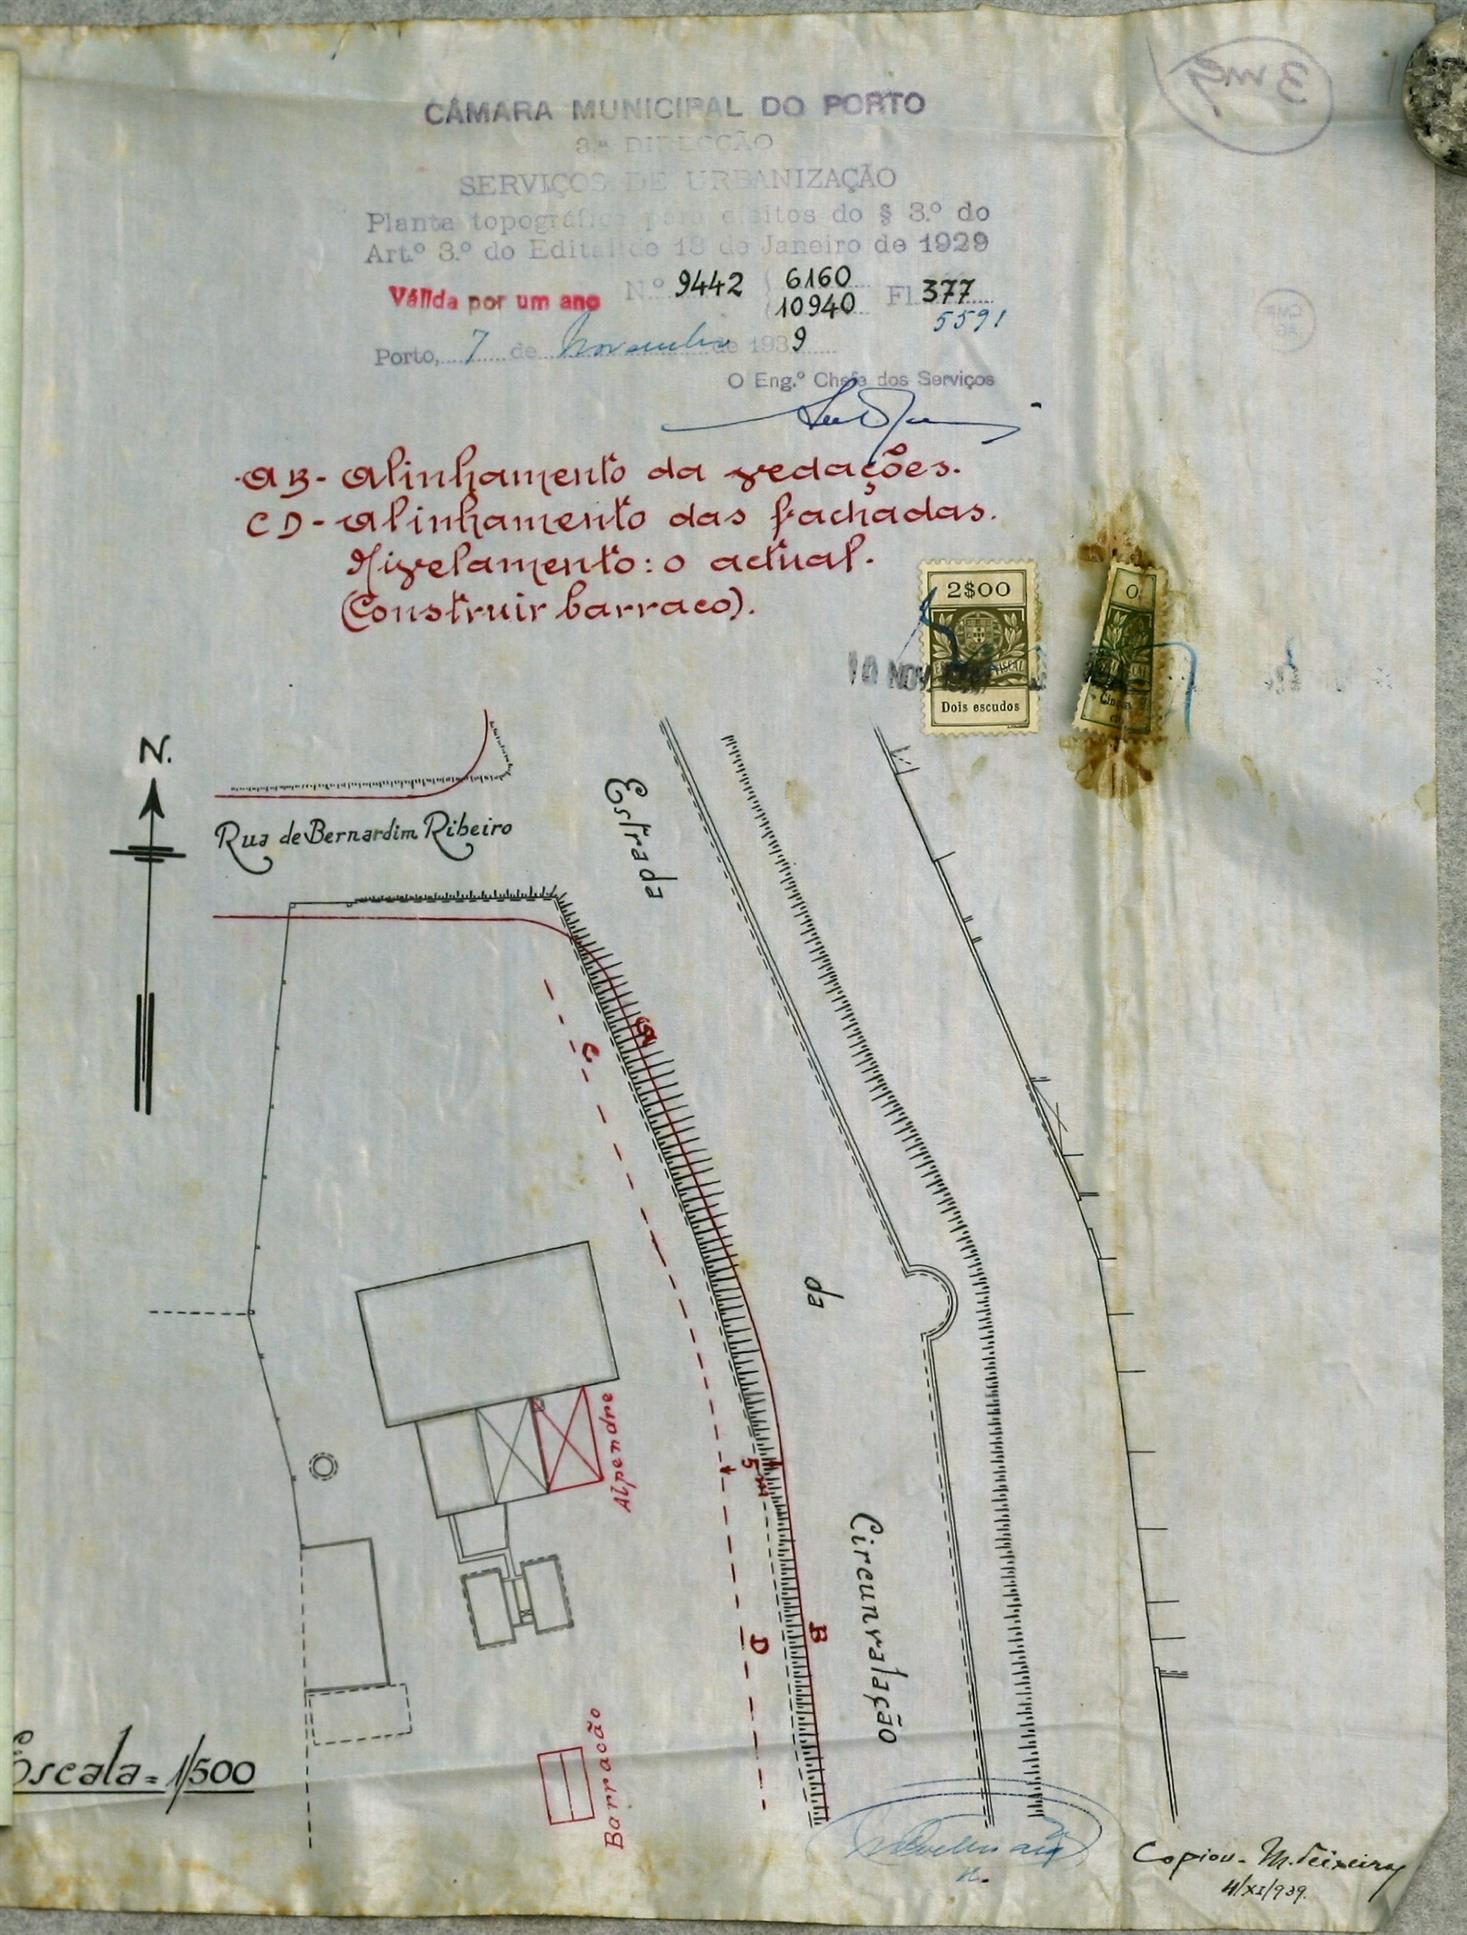 CÂMARA MUNICIPAL DO PORTO
3.ª DIRECÇÃO
SERVIÇOS DE URBANIZAÇÃO
Planta topográfica para efeitos do § 3.º do
Art.º 3.º do Edital de 18 de Janeiro de 1929
Válida por um ano N.º 9442 6160 Fl. 377
10940 5591
Porto, 7 de Novembro de 1939
O Eng.º Chefe dos Serviços
AB - Alinhamento da vedações.
CD - Alinhamento das fachadas.
Nivelamento: o actual.
(Construir barraco).
2$00
0
10 NOV
Dois escudos
N.
Rua de Bernardim Ribeiro
Estrada
da
Circunvalação
C
5 m
D
B
Alpendre
Barracão
Escala = 1/500
Copiou - M. Teixeira
4/XI/939.